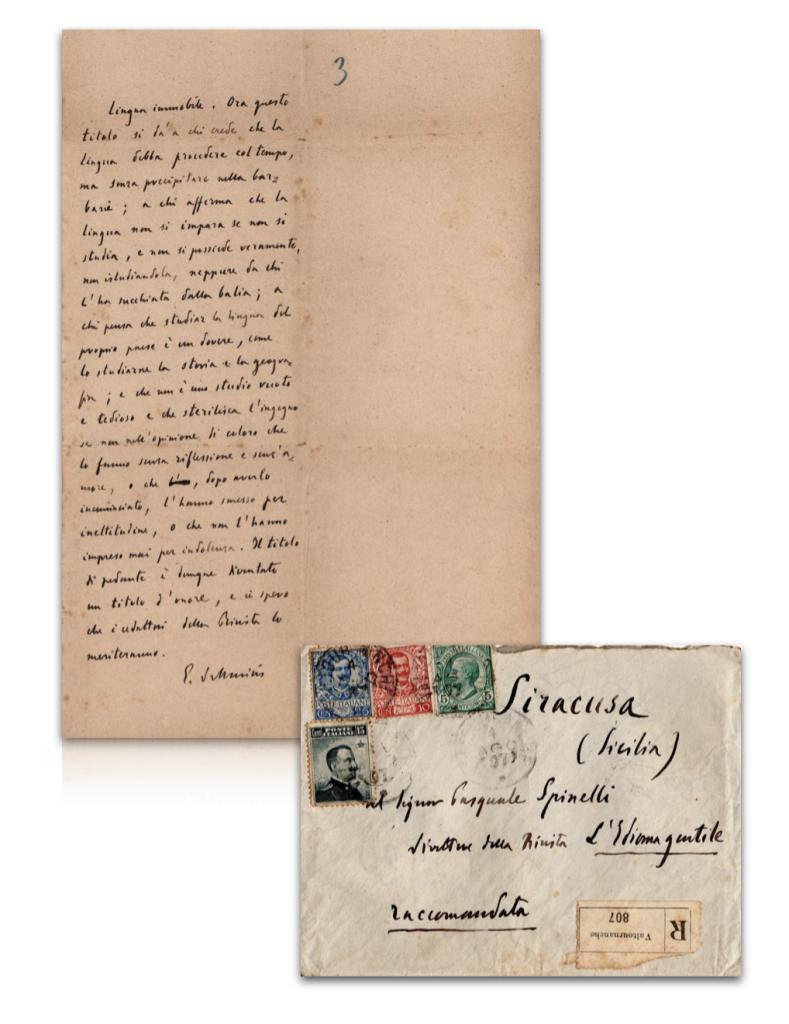 3
Lingua immobile. Ora questo
titolo si dà a chi crede che la
lingua debba procedere col tempo,
ma senza precipitare nella bar=
barie; a chi afferma che la
lingua non si impara se non si
studia, e non si possiede veramente,
non istudiandola, neppure da chi
l'ha succhiata dalla balia; a
chi pensa che studiar la lingua del
proprio paese è un dovere, come
lo studiarne la storia e la geogra=
fia; e che non è uno studio vuoto
e tedioso e che sterilisca l'ingegno
se non nell'opinione di coloro che
lo fanno senza riflessione e senz'a=
more, o che, dopo averlo
incominciato, l'hanno smesso per
inettitudine, o che non l'hanno
impreso mai per indolenza. Il titolo
di pedante è dunque diventato
un titolo d'onore, e io spero
che i redattori della Rivista lo
meriteranno.
E. De Amicis
POSTE ITALIANE
CENT. 25
POSTE ITALIANE
CEN. 10
POSTE ITALIANE
5 5
Cent. POSTE ITALIANE 15
Siracusa
(Sicilia)
al Signor Pasquale Spinelli
direttore della Rivista L'Idioma gentile
raccomandata
R
Valtournanche
807